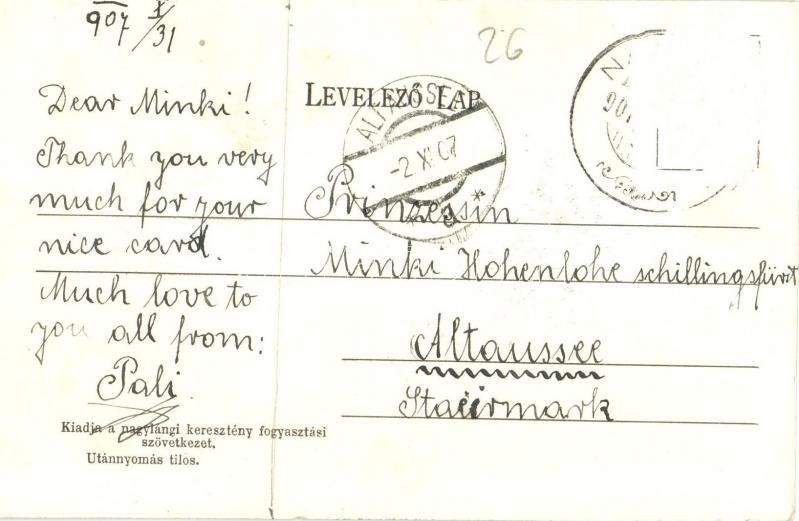 907 X/31
26
Dear Minki!
Thank you very
much for your
nice card.
Much love to
you all from:
Pali
Kiadja a nagylángi keresztény fogyasztási
szövetkezet.
Utánnyomás tilos.
LEVELEZŐ LAP
ALTAUSSEE
-2.XI.07
Prinzessin
Minki Hohenlohe schillingsfürst
Altaussee
Steiermark